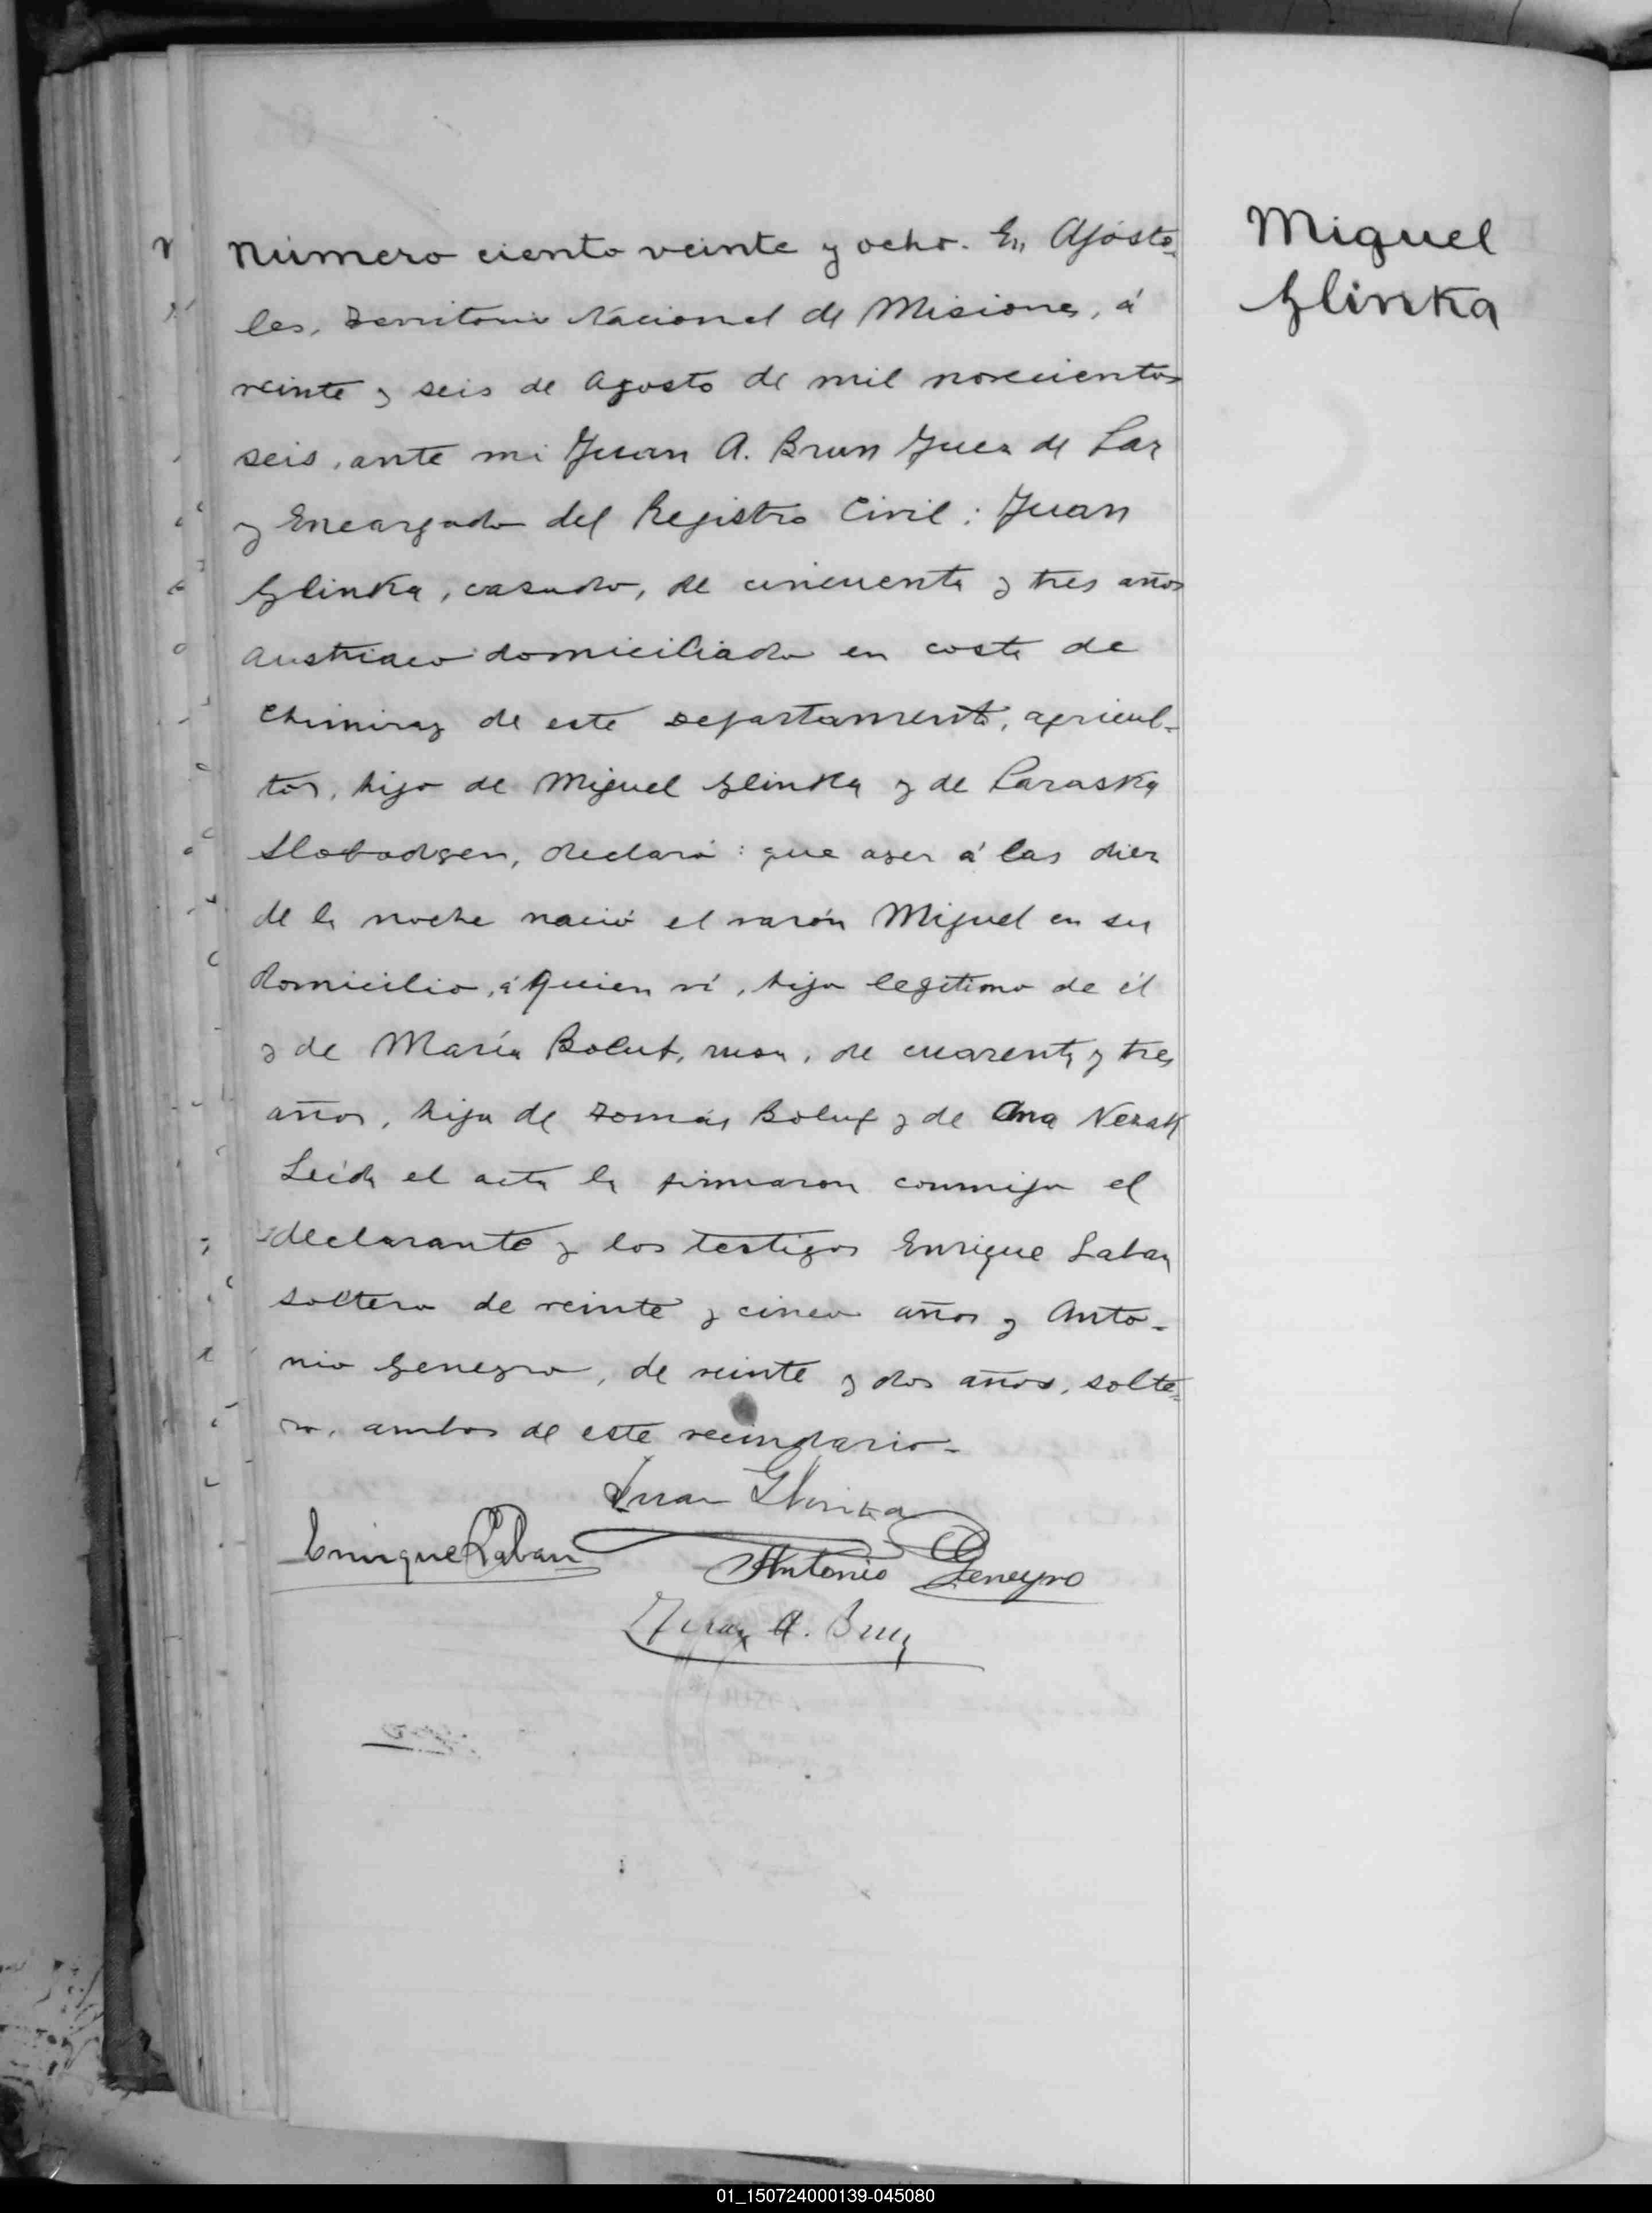 Número ciento veinte y ocho. En Apósto-
les, Territorio Nacional de Misiones, á
veinte y seis de Agosto de mil novecientos
seis, ante mi Juan A. Brun Juez de Paz
y Encargado del Registro Civil: Juan
Glinka, casado, de cincuenta y tres años
austriaco domiciliado en costa de
Chimiray de este Departamento, agricul-
tor, hijo de Miguel Glinka y de Paraska
Slobodzen, declaró: que ayer á las diez
de la noche nació el varón Miguel en su
domicilio, á quien ví, hijo legítimo de él
y de María Boluf, rusa, de cuarenta y tres
años, hija de Tomás Boluf y de Ana Nezak
Leída el acta la firmaron conmigo el
declarante y los testigos Enrique Laban
soltero de veinte y cinco años y Anto-
nio Geneyro, de veinte y dos años, solte-
ro, ambos de este vecindario-
Juan Glinka
Enrique Laban
Antonio Geneyro
Juan A. Brun
Miguel
Glinka
01_150724000139-045080